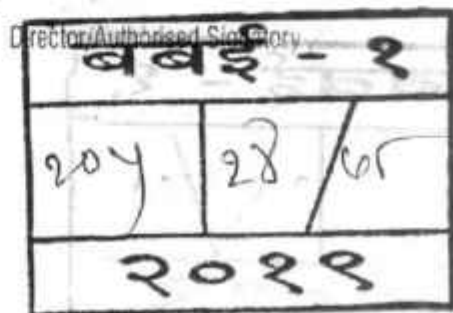 Director/Authorised Signatory
बबई - १
२०५ २४ /
२०१९